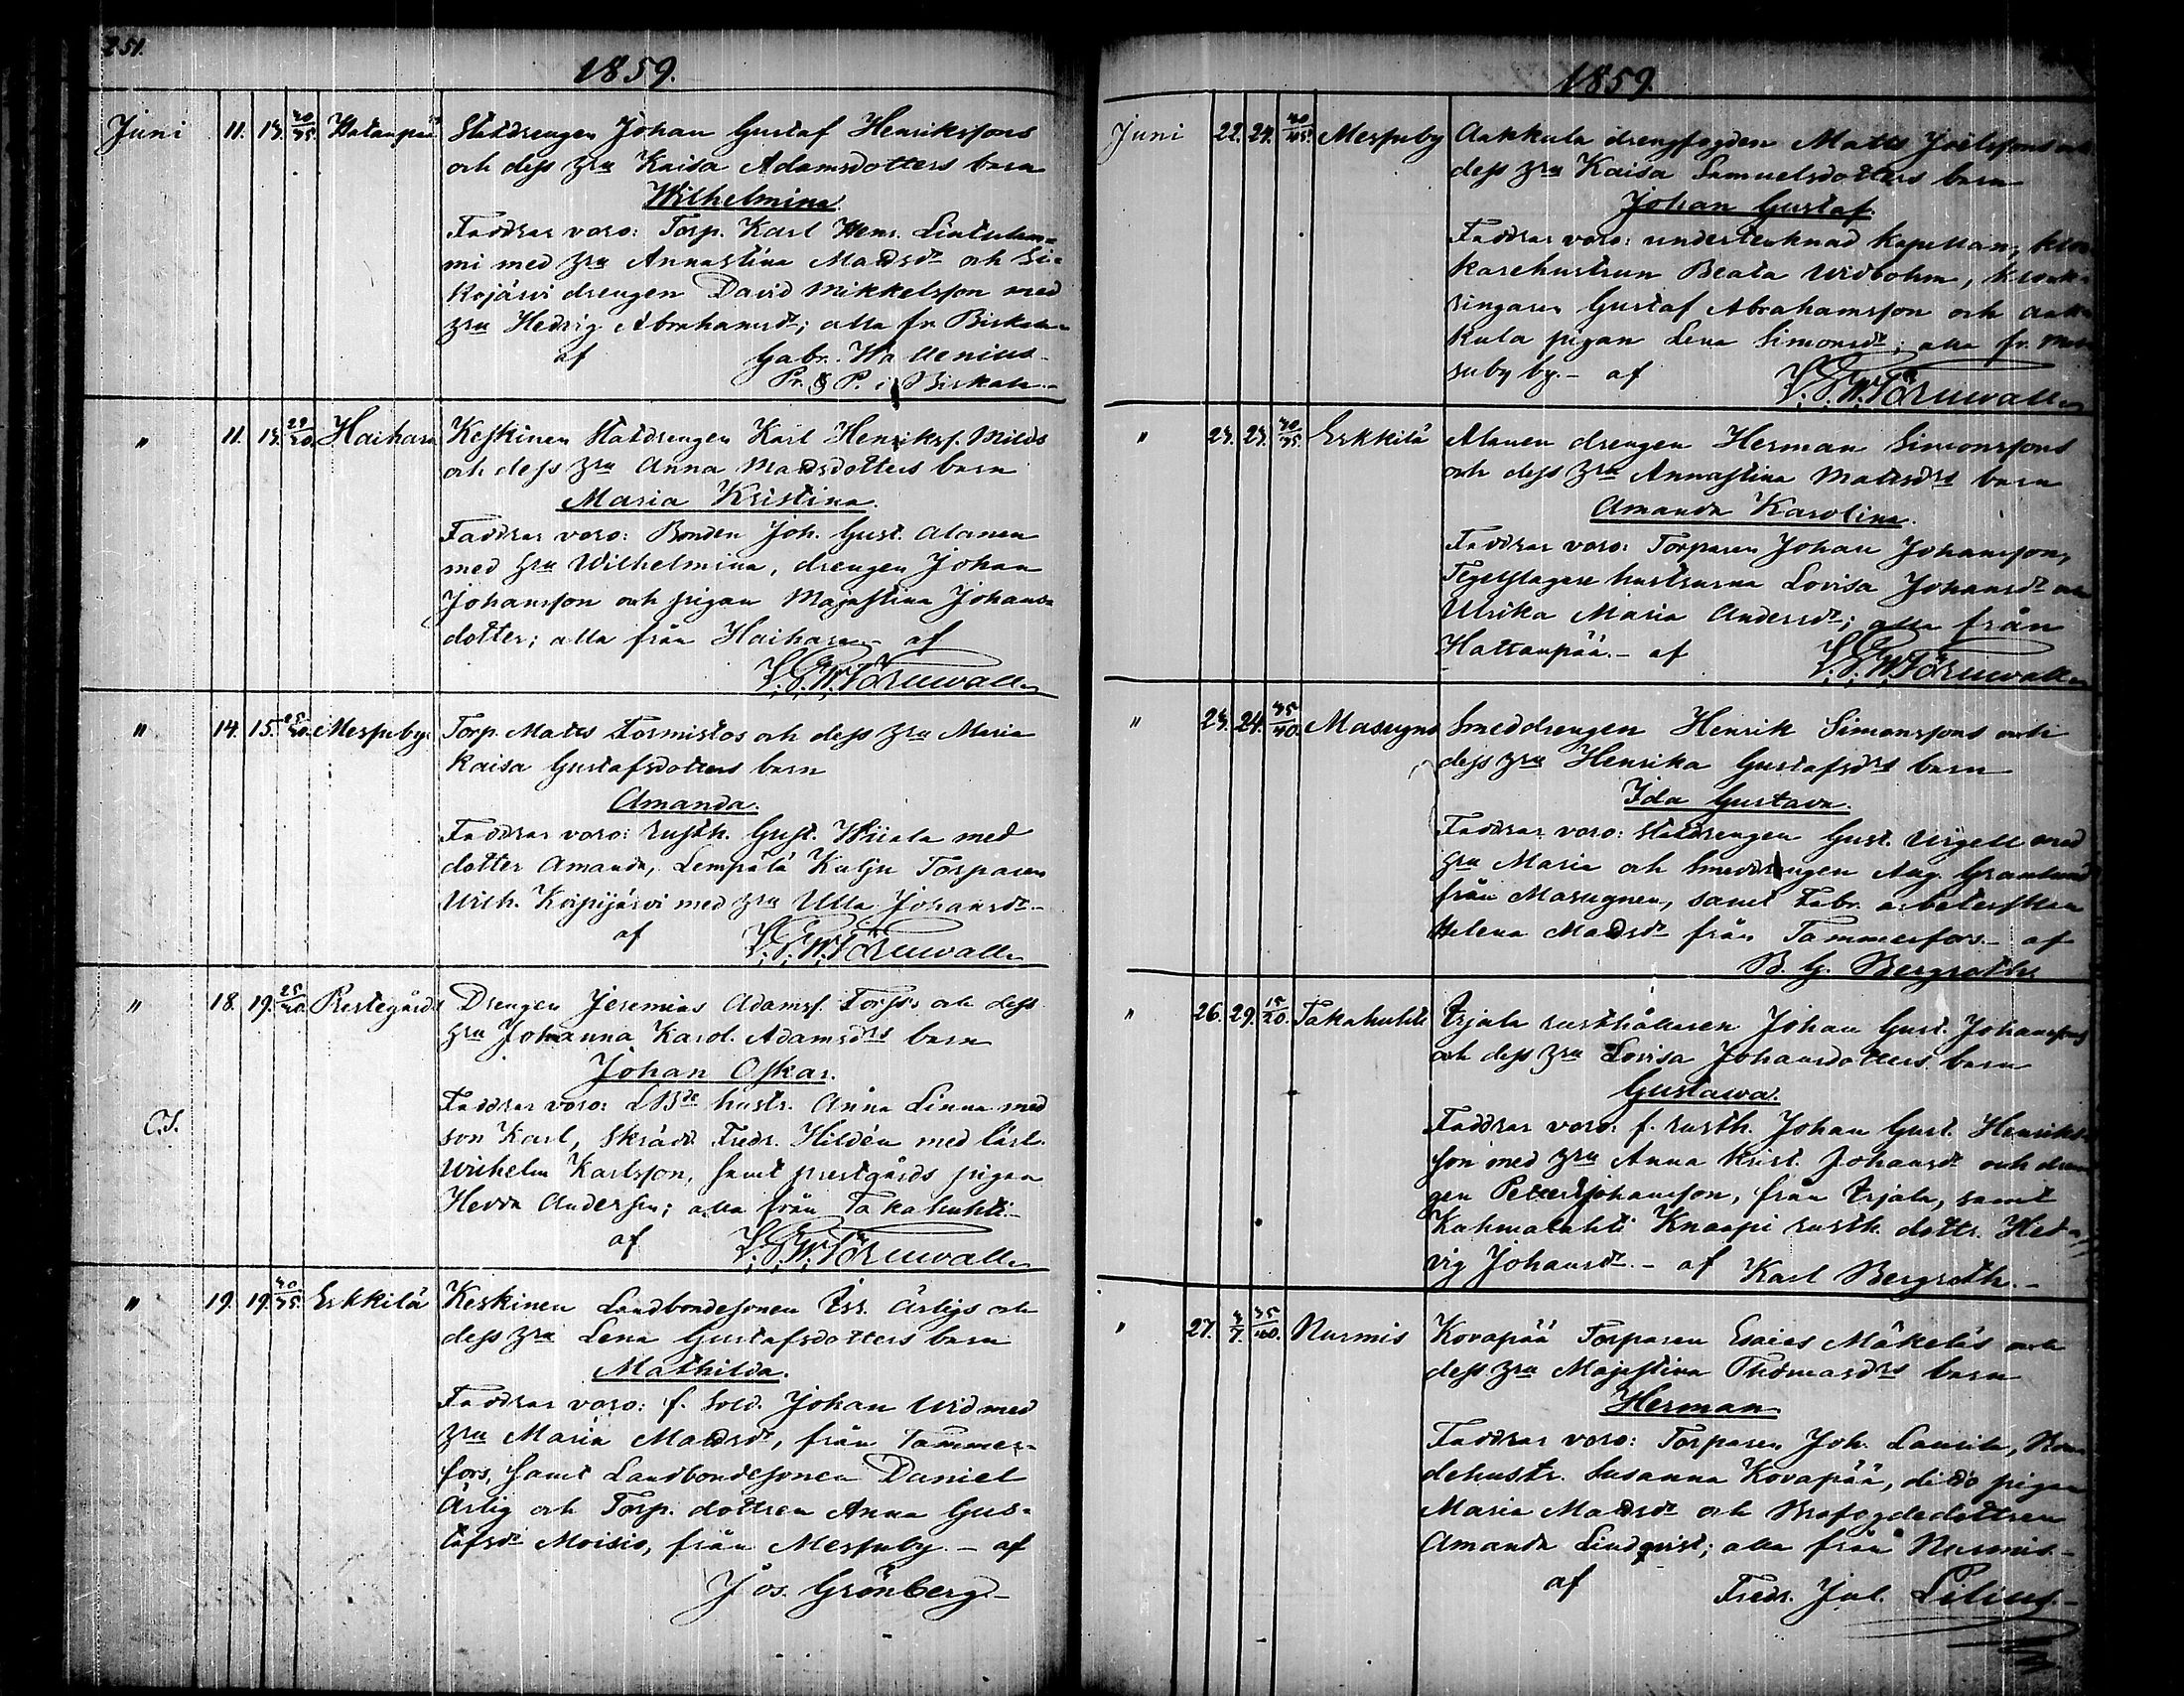 251.
1859.
Juni 11. 13. 30/35. Hatanpää Statdrengen Johan Gustaf Henrikssons
och dess hru Kaisa Adamsdotters barn
Wilhelmina.
Faddrar voro: Torp. Karl Henr.
mi med hru Annastina Mattsdr och Si-
kojärvi drengen David Mikkelsson med
hru Hedvig Abrahamsdr; alla fr. Birkala
af Gabr. Wallenius
Pr. & P. i Birkala.
" 11. 13. Haihara Keskinen Statdrengen Karl Henrikss. Milds
och dess hru Anna Mattsdotters barn
Maria Kristina.
Faddrar voro: Bonden Joh. Gust. Alanen
med hru Wilhelmina, drengen Johan
Johansson och pigan Majastina Johans-
dotter; alla från Haihara af
Törnwall
" 14. 15. Messuby Torp. Matts Tormistos och dess hru Maria
Kaisa Gustafsdotters barn
Amanda.
Faddrar voro: rusth. Gust. Wiiala med
dotter Amanda, Lempälä Kulju Torparen
Wilh. Korpijärvi med hru Ulla Johansdr
af Törnwall
" 18. 19. 25/30. Prestegårds Drengen Jeremias Adamss. Torss's och dess
hru Johanna Karol. Adamsdrs barn
Johan Oskar.
C.T. Faddrar voro: LBde hustr. Anna Linna med
son Karl, Skrädd. Fredr. Hildén med lärl.
Wilhelm Karlsson, samt prestgårds pigan
Hedda Andersdr; alla från Takahuhti
af Törnwall
" 19. 19. 30/35. Erkkilä Keskinen Landbondesonen Isr. Ärligs och
dess hru Lena Gustafsdotters barn
Mathilda.
Faddrar voro: f. Sold. Johan Urd med
hru Maria Mattsdr, från Tammer-
fors, samt Landbondesonen Daniel
Ärlig och Torp. dottren Anna Gus-
tafsdr Moisio, från Messuby. - af
Jos. Grönberg
1859.
Juni 22. 24. 40/45. Messuby Aakkula drengfogden Matts Joelssons och
dess hru Kaisa Samuelsdotters barn
Johan Gustaf.
Faddrar voro: undertecknad Kapellan,
karehustrun Beata Widbohm,
ringaren Gustaf Abrahamsson och Aak-
kula pigan Lena Simonsdr; alla fr.
suby by. - af Törnwall
" 23. 23. 30/35. Erkkilä Alanen drengen Herman Simonssons
och dess hru Annastina Mattsdrs barn
Amanda Karolina.
Faddrar voro: Torparen Johan Johansson,
Tegelslagare hustrurna Lovisa Johansdr och
Ulrika Maria Andersdr; alla från
Hattanpää. - af Törnwall
" 23. 24. 35/40. Masugns Smeddrengen Henrik Simonssons och
dess hru Henrika Gustafsdrs barn
Ida Gustava.
Faddrar voro: Statdrengen Gust. Urgell med
hru Maria och Smeddrengen Aug. Granlund
från Masugnen, samt Fabr. arbeterskan
Helena Mattsdr från Tammerfors - af
B. G. Bergroth
" 26. 29. 15/20. Takahuhti Irjala rusthållaren Johan Gust. Johanssons
och dess hru Lovisa Johansdotters barn
Gustawa.
Faddrar voro: f. rusth. Johan Gust. Henriks-
son med hru Anna Krist. Johansdr och dren-
gen Petter Johansson, från Irjala, samt
Kahmalahti Knaapi rusth. dottr. Hed-
vig Johansdr. - af Karl Bergroth. -
" 27. 3/7. 35/40. Nurmis Kovapää Torparen Esaias Mäkeläs och
dess hru Majastina Thomasdrs barn
Herman
Faddrar voro: Torparen Joh. Laurila,
dehustr. Susanna Kovapää, dito pigan
Maria Mattsdr och Brofogdedottren
Amanda Lindqvist; alla från Nurmis. -
af Fredr. Jul. Lilius. -